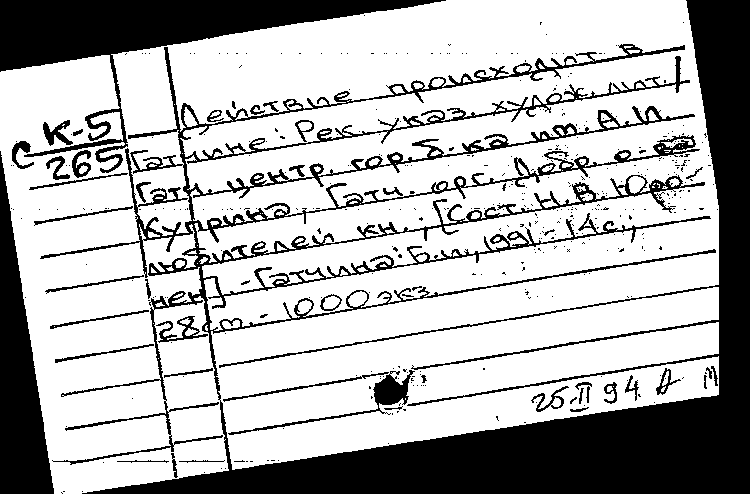 с К-5
265
Действие происходит в
Гатчине: Рек. указ. худож. лит. /
Гатч. центр. гор. б-ка им. А.И.
Куприна, Гатч. орг. Добр. о-ва
любителей кн.; [Сост. Н.В. Юро-
нен]. - Гатчина: Б.и., 1991. - 14 с.;
28 cm. - 1000 экз.
25 II 94 А М